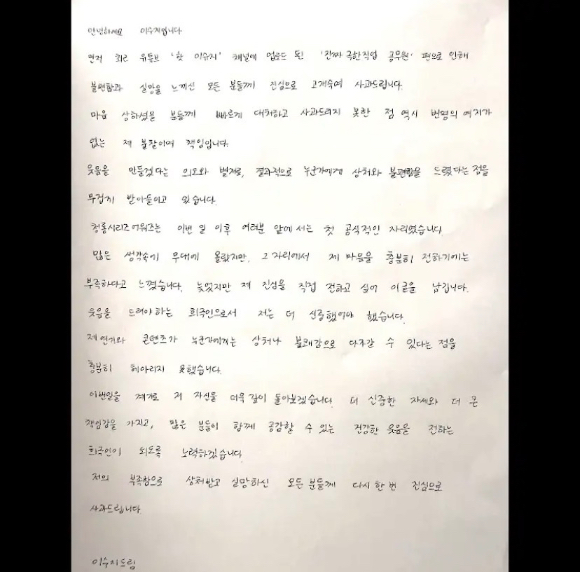 안녕하세요 이수지입니다
먼저 저의 유튜브 '핫이슈지' 채널에 업로드 된 '진짜 극한직업 공무원' 편으로 인해
불편함과 실망을 느끼신 모든 분들께 진심으로 고개숙여 사과드립니다.
마음 상하셨을 분들께 빠르게 대처하고 사과드리지 못한 점 역시 변명의 여지가
없는 제 불찰이며 책임입니다.
웃음을 만들겠다는 의도와 별개로, 결과적으로 누군가에게 상처와 불편함을 드렸다는 점을
무겁게 받아들이고 있습니다.
청룡시리즈어워즈는 이번 일 이후 여러분 앞에 서는 첫 공식적인 자리였습니다
많은 생각속에 무대에 올랐지만, 그 자리에서 제 마음을 충분히 전하기에는
부족하다고 느꼈습니다. 늦었지만 제 진심을 직접 전하고 싶어 이 글을 남깁니다.
웃음을 드려야하는 희극인으로서 저는 더 신중했어야 했습니다.
제 연기와 콘텐츠가 누군가에게는 상처나 불쾌감으로 다가갈 수 있다는 점을
충분히 헤아리지 못했습니다.
이번일을 계기로 저 자신을 더욱 깊이 돌아보겠습니다. 더 신중한 자세와 더 큰
책임감을 가지고, 많은 분들이 함께 공감할 수 있는 건강한 웃음을 전하는
희극인이 되도록 노력하겠습니다
저의 부족함으로 상처받고 실망하신 모든 분들께 다시 한 번 진심으로
사과드립니다
이수지 드림